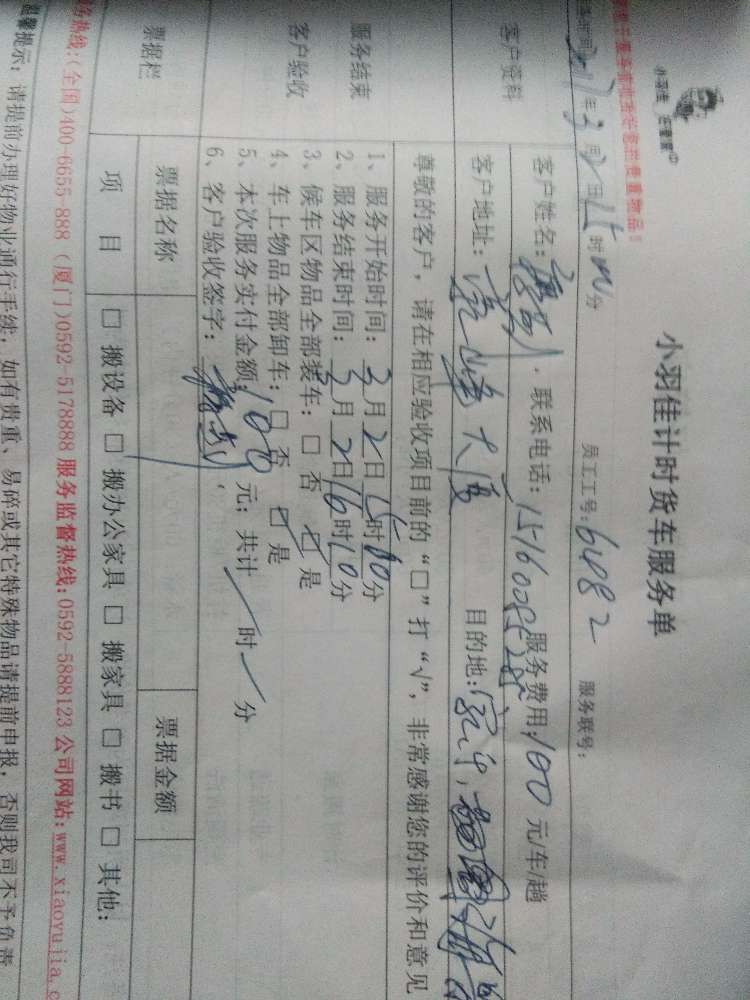 小羽佳计时货车服务单
年 3 月 2 日 15 时 00 分 员工工号：6482 服务联号：
客户资料
客户姓名： 联系电话： 服务费用：100 元/车/趟
客户地址： 大厦 目的地：
尊敬的客户，请在相应验收项目前的“□”打“√”，非常感谢您的评价和意见
服务结束
客户验收
1、服务开始时间：3月2日15时00分
2、服务结束时间：3月2日16时10分
3、候车区物品全部装车：□ 否 ☑ 是
4、车上物品全部卸车：□ 否 ☑ 是
5、本次服务实付金额：100 元；共计 时 分
6、客户验收签字：
票据栏
票据名称 票据金额
项 目 □ 搬设备 □ 搬办公家具 □ 搬家具 □ 搬书 □ 其他：
务热线：(全国)400-6655-888 (厦门)0592-5178888 服务监督热线：0592-5888123 公司网站：www.xiaoyujia.c
温馨提示：请提前办理好物业通行手续，如有贵重、易碎或其它特殊物品请提前申报，否则我司不予负责